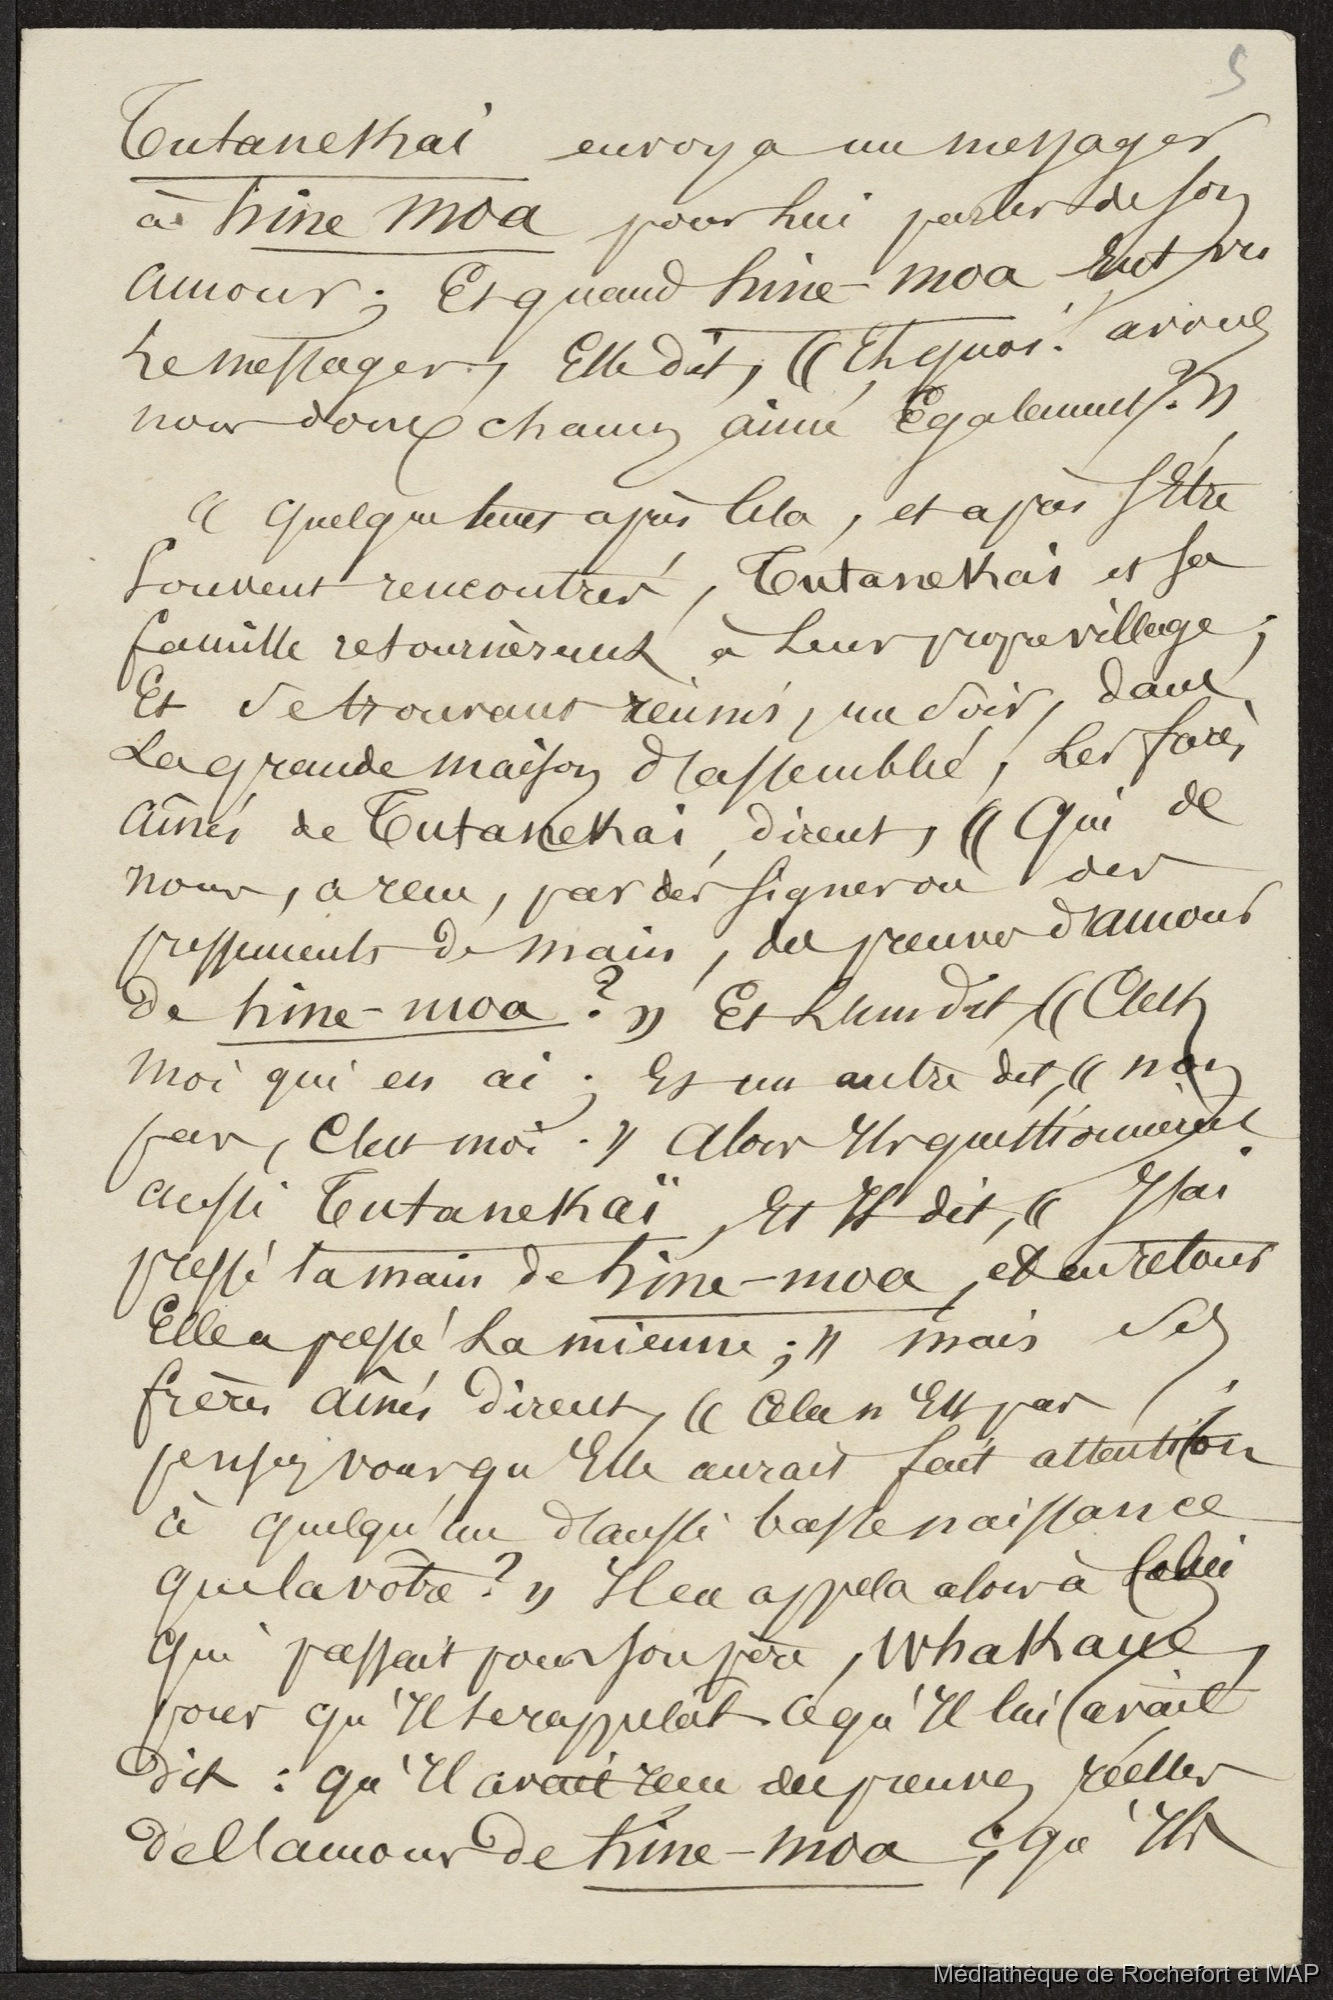 5
Tutanekai envoya un messager
à hine moa pour lui parler de son
amour ; Et quand hine-moa eut vu
le messager, Elle dit, « Eh quoi ! avons
nous donc chacun aimé Egalement ? »
« Quelque tems après cela, et après s'Etre
souvent rencontrés, Tutanekai et sa
famille retournèrent à leur propre village ;
Et se trouvant réunis, un soir, dans
la grande maison d'assemblée, les frères
aînés de Tutanekai dirent, « Qui de
nous, a reçu, par des signes ou des
pressements de main, des preuves d'amour
de hine-moa ? » Et l'un dit « C'est
moi qui en ai ; Et un autre dit, « non
pas, C'est moi . » Alors Ils questionnèrent
aussi Tutanekaï, Et Il dit, « J'ai
pressé la main de hine-moa, et en retour
Elle a pressé la mienne ; » mais ses
frères aînés dirent, « Cela n'Est pas ;
pensez vous qu'Elle aurait fait attention
à quelqu'un d'aussi basse naissance
que la vôtre ? » Il en appela alors à Celui
qui passait pour son père, Whakaue,
pour qu'Il se rappelât ce qu'Il lui avait
dit : qu'Il avait reçu des preuves réelles
de l'amour de hine-moa ; qu'Ils
Médiathèque de Rochefort et MAP